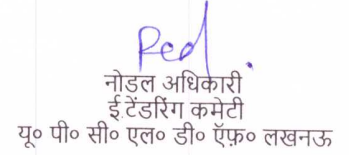 नोडल अधिकारी
ई.टेंडरिंग कमेटी
यू० पी० सी० एल० डी० ऍफ़० लखनऊ